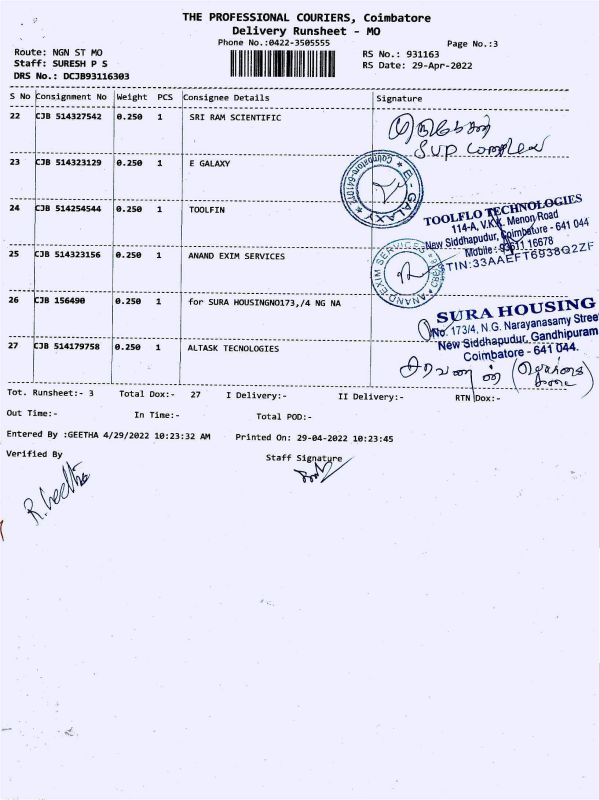 THE PROFESSIONAL COURIERS, Coimbatore
Delivery Runsheet - MO
Phone No.:0422-3505555
Page No.:3
Route: NGN ST MO
RS No.: 931163
Staff: SURESH P S
RS Date: 29-Apr-2022
DRS No.: DCJB93116303
S No Consignment No Weight PCS Consignee Details Signature
22 CJB 514327542 0.250 1 SRI RAM SCIENTIFIC
SUP complex
23 CJB 514323129 0.250 1 E GALAXY
E - GALAXY * Coimbatore-641012 *
24 CJB 514254544 0.250 1 TOOLFIN
TOOLFLO TECHNOLOGIES
114-A, V.K.K. Menon Road
New Siddhapudur, Coimbatore - 641 044
Mobile : 93611 16678
TIN:33AAEFT6938Q2ZF
25 CJB 514323156 0.250 1 ANAND EXIM SERVICES
ANAND EXIM SERVICES
26 CJB 156490 0.250 1 for SURA HOUSINGNO173,/4 NG NA
SURA HOUSING
No. 173/4, N.G. Narayanasamy Stree
New Siddhapudur, Gandhipuram
Coimbatore - 641 044.
27 CJB 514179758 0.250 1 ALTASK TECNOLOGIES
சரவணன்
Tot. Runsheet:- 3 Total Dox:- 27 I Delivery:- II Delivery:- RTN Dox:-
Out Time:- In Time:- Total POD:-
Entered By :GEETHA 4/29/2022 10:23:32 AM Printed On: 29-04-2022 10:23:45
Verified By Staff Signature
R. Geetha